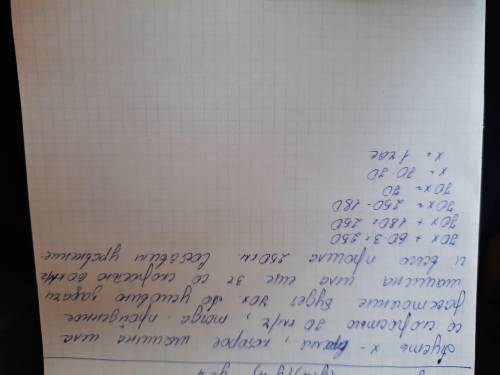 (y+4)(y-4) y-4
Пусть x - время, которое машина шла
со скоростью 70 км/ч, тогда пройденное
расстояние будет 70x. По условию задачи
машина шла еще 3ч со скоростью 60 км/ч
и всего прошла 250 км. Составим уравнение.
70x + 60·3 = 250
70x + 180 = 250
70x = 250 - 180
70x = 70
x = 70:70
x = 1 час